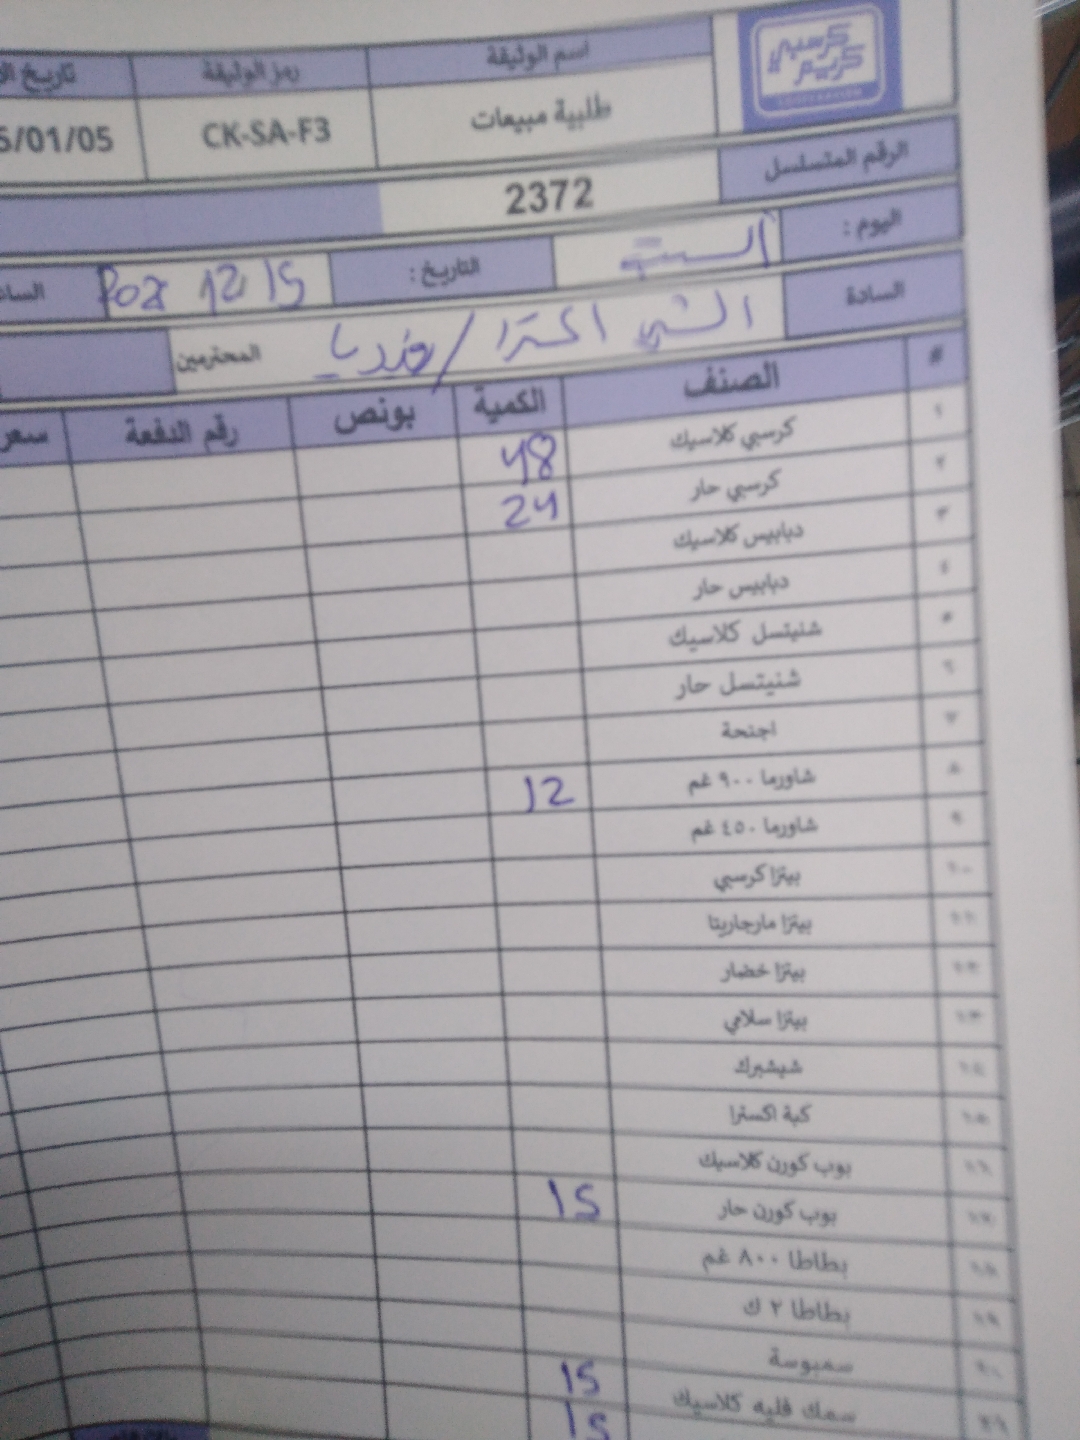 كرسبي كريم
اسم الوثيقة رمز الوثيقة تاريخ
طلبية مبيعات CK-SA-F3 5/01/05
الرقم المتسلسل 2372
اليوم : السبت التاريخ :
السادة المحترمين
# الصنف الكمية بونص رقم الدفعة سعر
١ كرسبي كلاسيك 48
٢ كرسبي حار 24
٣ دبابيس كلاسيك
٤ دبابيس حار
٥ شنيتسل كلاسيك
٦ شنيتسل حار
٧ اجنحة
٨ شاورما ٩٠٠ غم 12
٩ شاورما ٤٥٠ غم
١٠ بيتزا كرسبي
١١ بيتزا مارجاريتا
١٢ بيتزا خضار
١٣ بيتزا سلامي
١٤ شيشبرك
١٥ كبة اكسترا
١٦ بوب كورن كلاسيك
١٧ بوب كورن حار 15
١٨ بطاطا ٨٠٠ غم
١٩ بطاطا ٢ ك
٢٠ سمبوسة 15
٢١ سمك فليه كلاسيك 15